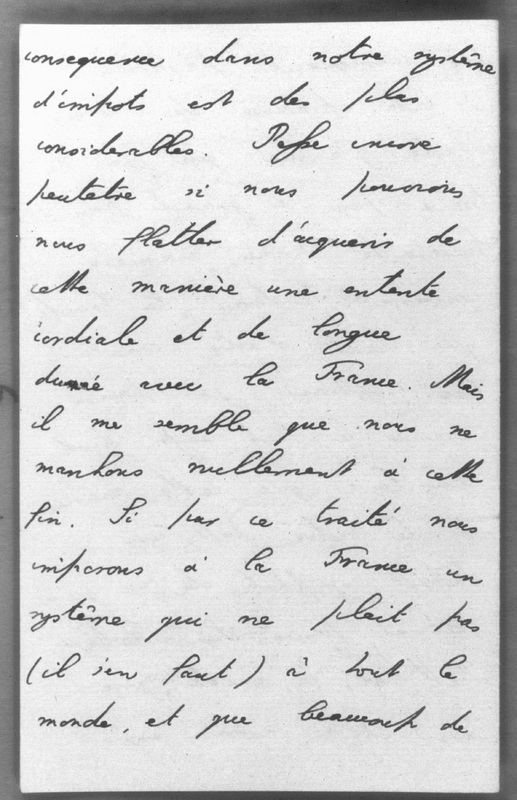 consequence dans notre système
d'impots est des plus
considerables. Passe encore
peutetre si nous pouvions
nous flatter d'acquerir de
cette manière une entente
cordiale et de longue
durée avec la France. Mais
il me semble que nous ne
marchons nullement à cette
fin. Si par ce traité nous
imposons à la France un
système qui ne plait pas
(il s'en faut) à tout le
monde, et que beaucoup de